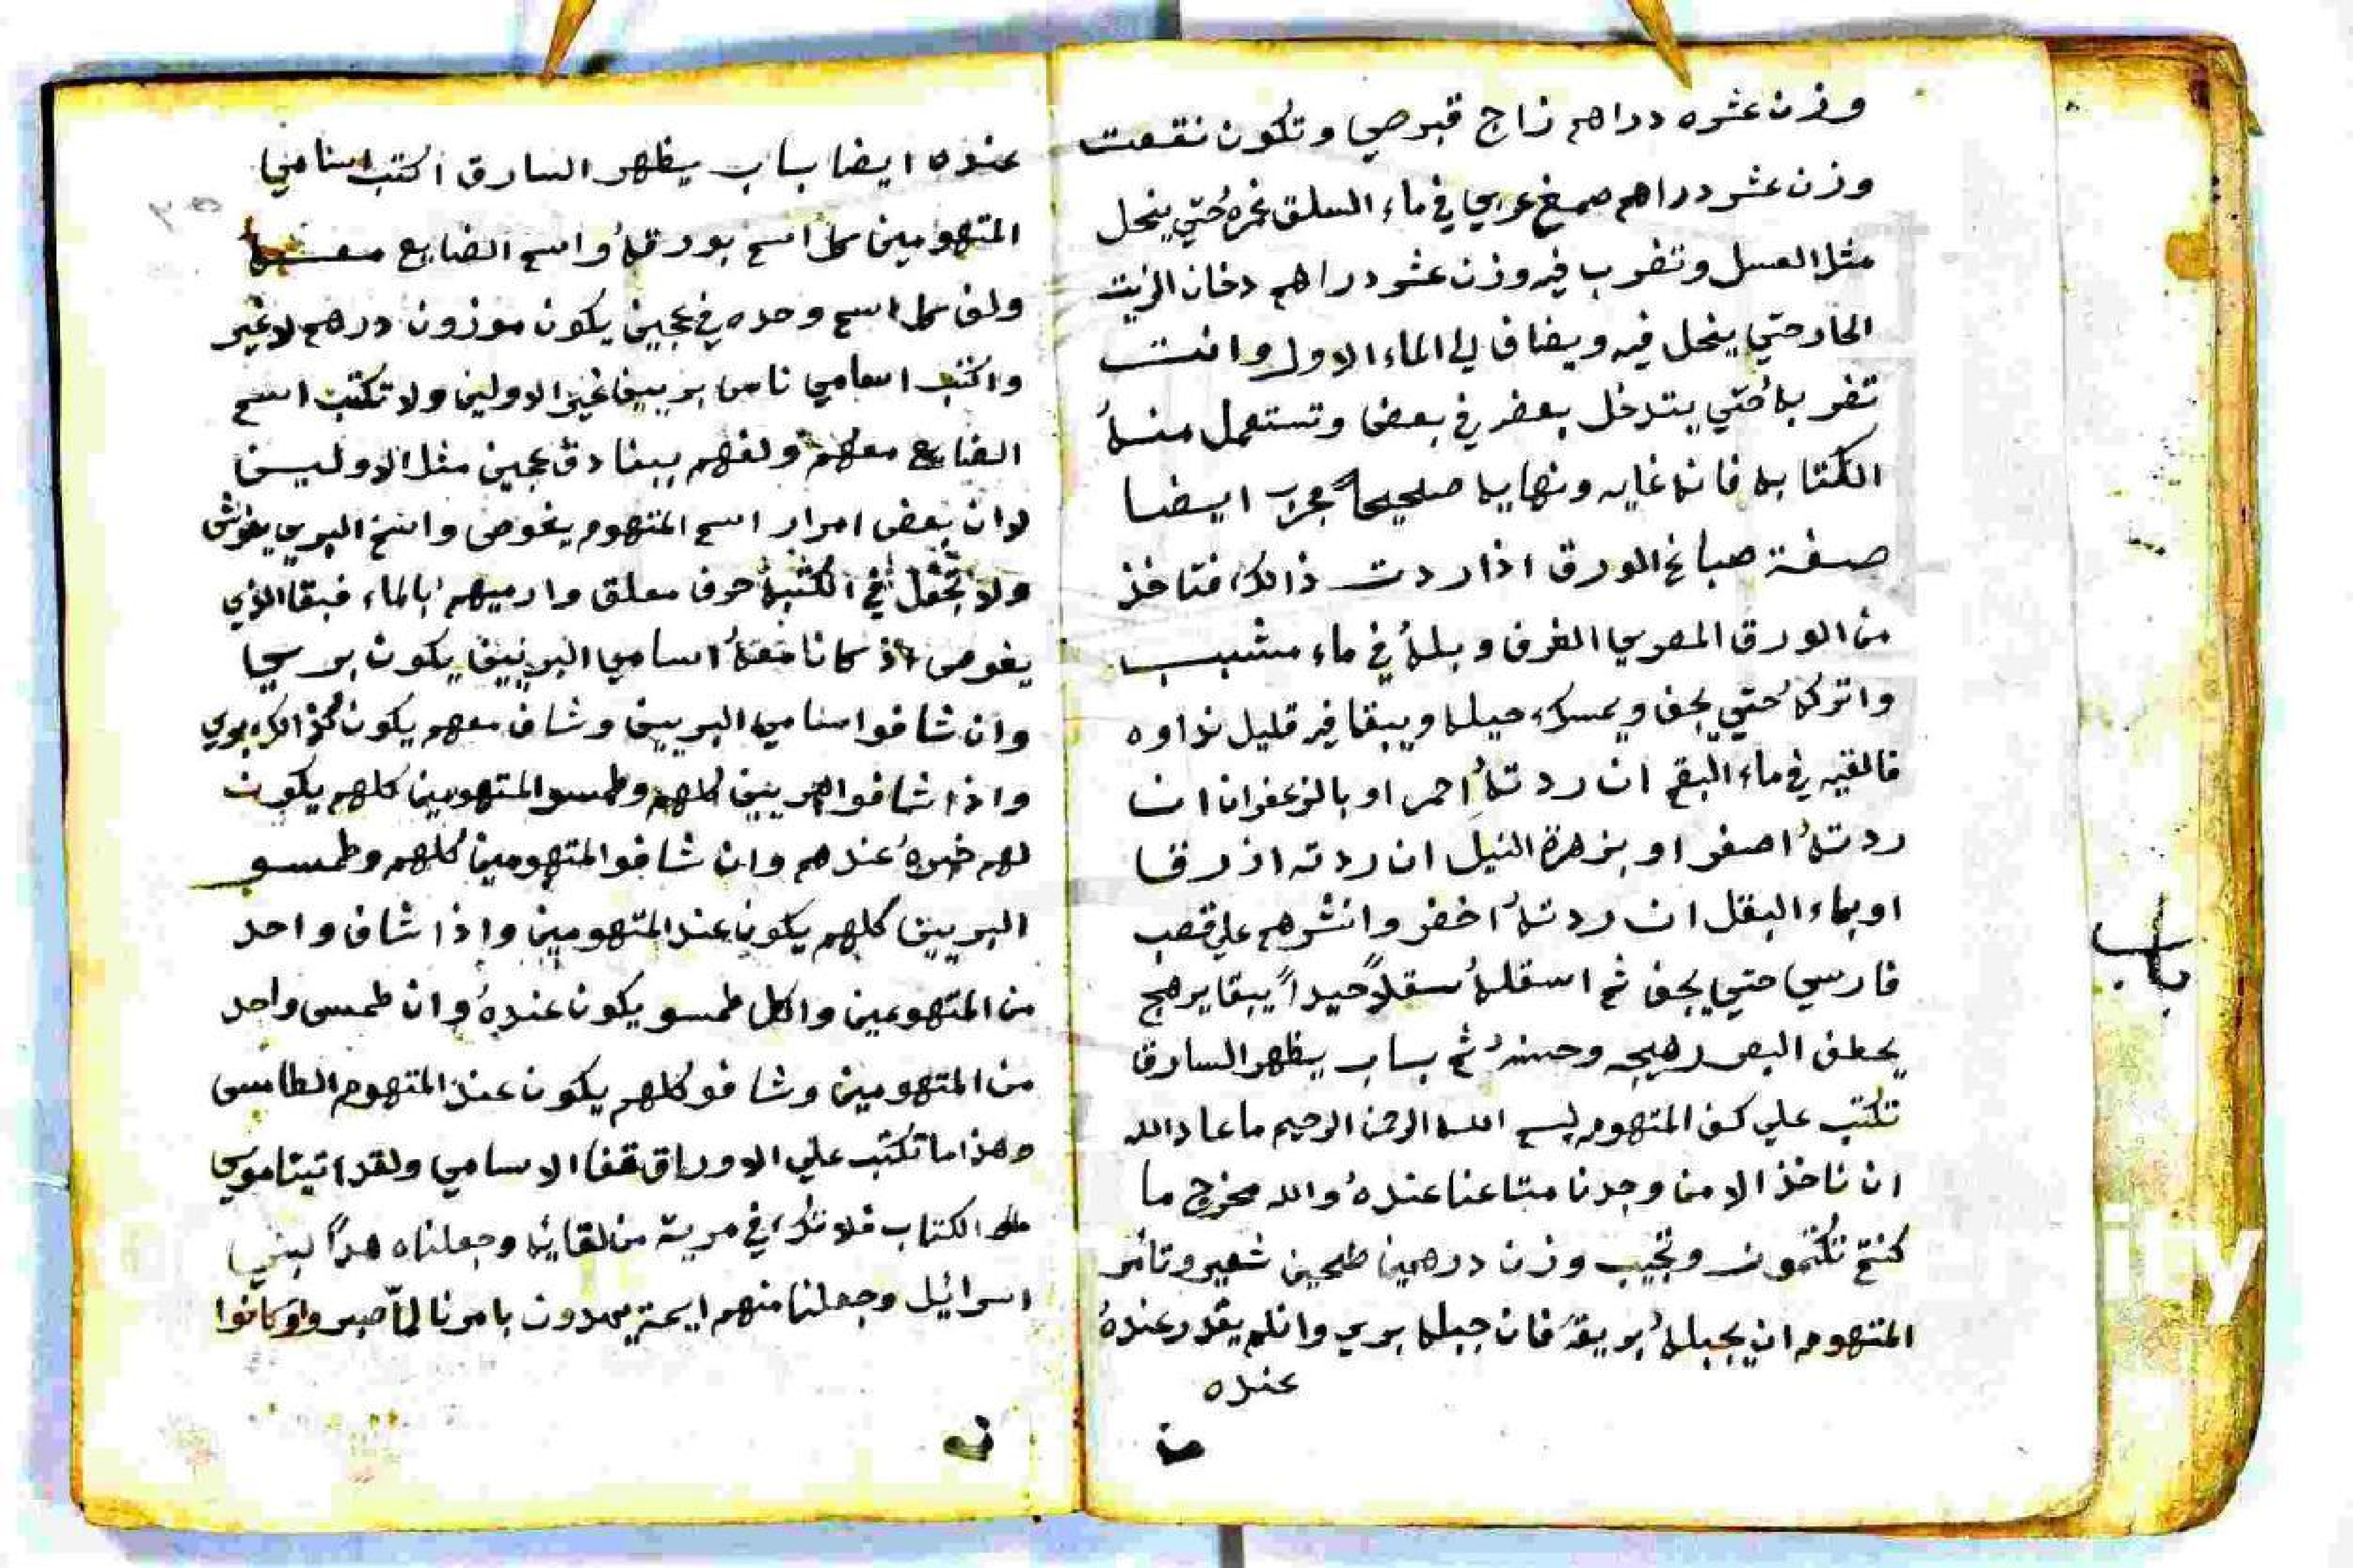 وزن عشره دراهم زاج قبرصي وتكون نقعت
وزن عشر دراهم صمغ عربي في ماء السلق غمره حتي ينحل
مثل العسل وتضرب فيه وزن عشر دراهم دخان الزيت
الحار حتي ينحل فيه ويضاف الي الماء الاول وانت
تضربه حتي يتدخل بعضه في بعض وتستعمل منه
الكتابه فانه غايه ونهايه صحيحاً مجرب ايضا
صفة صباغ الورق اذا ردت ذالك فتاخذ
من الورق المصري الفرف وبله في ماء مشبب
واتركه حتي يجف ويمسك حيله ويبقا فيه قليل نداوه
فالقيه في ماء البقم ان ردته احمر او بالزعفران ان
ردته اصفر او بزهرة النيل ان ردته ازرق
او بماء البقل ان ردته اخضر وانشرهم علي قصب
فارسي حتي يجف ثم اسقله سقلاً جيداً يبقا يرهج
يخطف البصر رهيجه وحسنه ثم باب يظهر السارق
باب
تكتب علي كف المتهوم بسم الله الرحمن الرحيم ما عاد الله
ان ناخذ الا من وجدنا متاعنا عنده والله مخرج ما
كنتم تكتمون وتجيب وزن درهمين طحين شعير وتامر
المتهوم ان يجبله بريقه فان جبله بري وانلم يقدر عنده
عنده
عنده ايضا باب يظهر السارق اكتب اسامي
المتهومين كل اسم بورقه واسم الضايع معه
ولف كل اسم وحده في عجين يكون موزون درهم لا غير
واكتب اسامي ناس بريين غير الاولين ولا تكتب اسم
الضايع معهم ولفهم ببنادق عجين مثل الاولين
لوان بعض امرار اسم المتهوم يغوص واسم البري يغوش
ولا تجعل في الكتبه حرف معلق وارميهم بالماء فبقا الذي
يغوص اذ كانا معه اسامي البريين يكون بري
وان شافوا اسامي البريين وشاف معهم يكون كذالك بري
واذا شافوا البريين كلهم وطمسو المتهومين كلهم يكون
لهم خبره عندهم وان شافو المتهومين كلهم وطمسو
البريين كلهم يكون عند المتهومين واذا شاف واحد
من المتهومين والكل طمسو يكون عنده وان طمس واحد
من المتهومين وشافو كلهم يكون عند المتهوم الطامس
وهذا ما تكتب علي الاوراق قفا الاسامي ولقد اتينا موسي
الكتاب فلا تك في مرية من لقايه وجعلناه هداً لبني
اسرائيل وجعلنا منهم ايمة يهدون بامرنا لمّا صبروا وكانوا